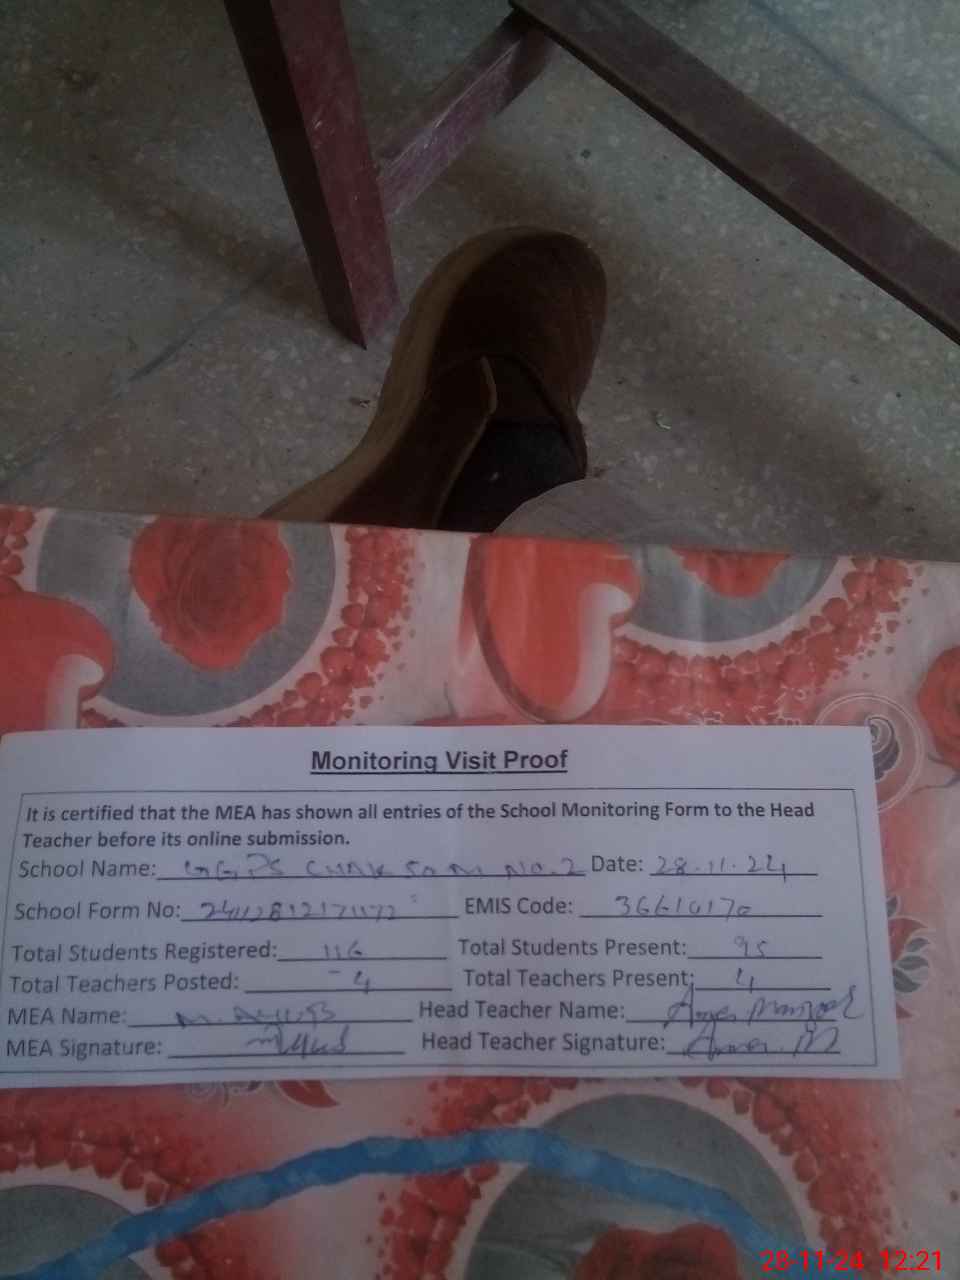 Monitoring Visit Proof
It is certified that the MEA has shown all entries of the School Monitoring Form to the Head
Teacher before its online submission.
School Name: GGPS No. 2 Date: 28.11.24
School Form No: EMIS Code: 36610170
Total Students Registered: 116 Total Students Present: 95
Total Teachers Posted: 4 Total Teachers Present: 4
MEA Name: M. AYUB Head Teacher Name:
MEA Signature: Head Teacher Signature:
28-11-24 12:21